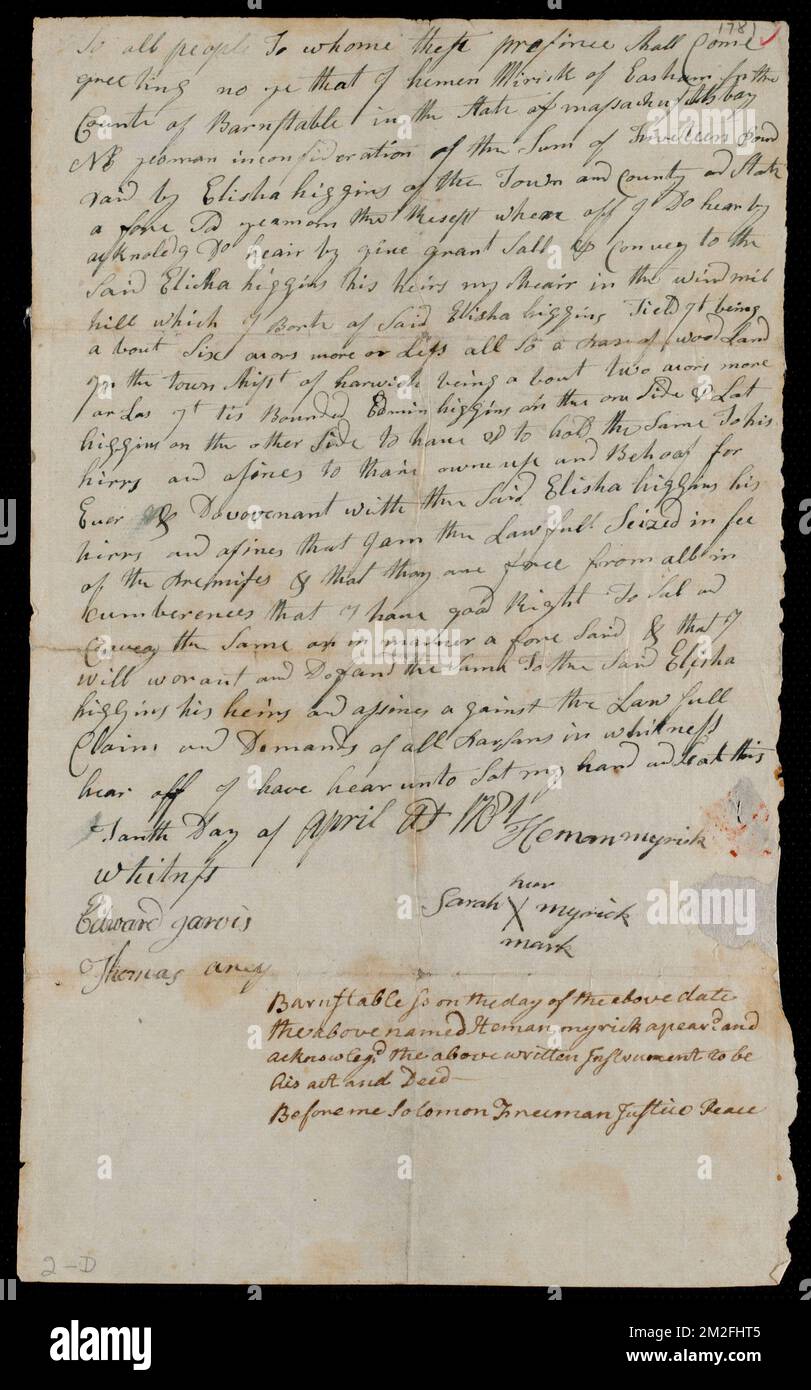 1781
To all people To whome these presince Shall Come
greeting no ye that I hemen Mirick of Easham In the
Counte of Barnstable in the State of massachusetts bay
NE yeoman inconsideration of the Sum of pound
paid by Elisha higgins of the Town and County ad State
a fore Sd yeamon the Resept where off I Do hear by
acknoledg Do hear by give grant Sall & Convey to the
Said Elisha higgins his heirs my Sheair in the wind mil
hill which I of Said Elisha higgins Field yt being
a bout Six acors more or Less all So a of wood Land
In the town Shipt of harwich being a bout two acors more
or Las yt tis Bounded higgins on the one Side & Lot
higgins on the other Side to have & to hold the Same To his
hirrs and asines to thare owne use and Behoof for
Ever & Dovovenant withe the Said Elisha higgins his
hirrs and asines that I am the Lawfull Seized in fee
of the Premises & that thay are free from all in
cumberences that I have good Right To Sel ad
Convey the Same in manner a fore Said & that I
will worant and Defand the Same To the Said Elisha
higgins his heirs and assines a gainst the Law full
Claims and Demands of all Parsans in whitness
hear off I have hear unto Sat my hand ad Seal this
Tanth Day of April AD 1781
Heman myrick
whitnss
her
Sarah X myrick
mark
Edward Jarvis
Thomas Arey
Barnstable Ss on the day of the above date
the above named Heman myrick apeard and
acknowlegd the above written Instrument to be
his act and Deed—
Before me Solomon Freeman Justice Peace
2-D
alamy
Image ID: 2M2FHT5
www.alamy.com